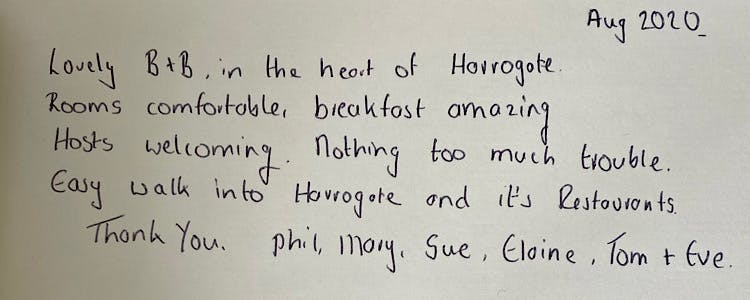 Aug 2020
Lovely B+B, in the heart of Harrogate.
Rooms comfortable, breakfast amazing
Hosts welcoming. Nothing too much trouble.
Easy walk into Harrogate and it's Restaurants.
Thank You. Phil, Mary, Sue, Elaine, Tom + Eve.